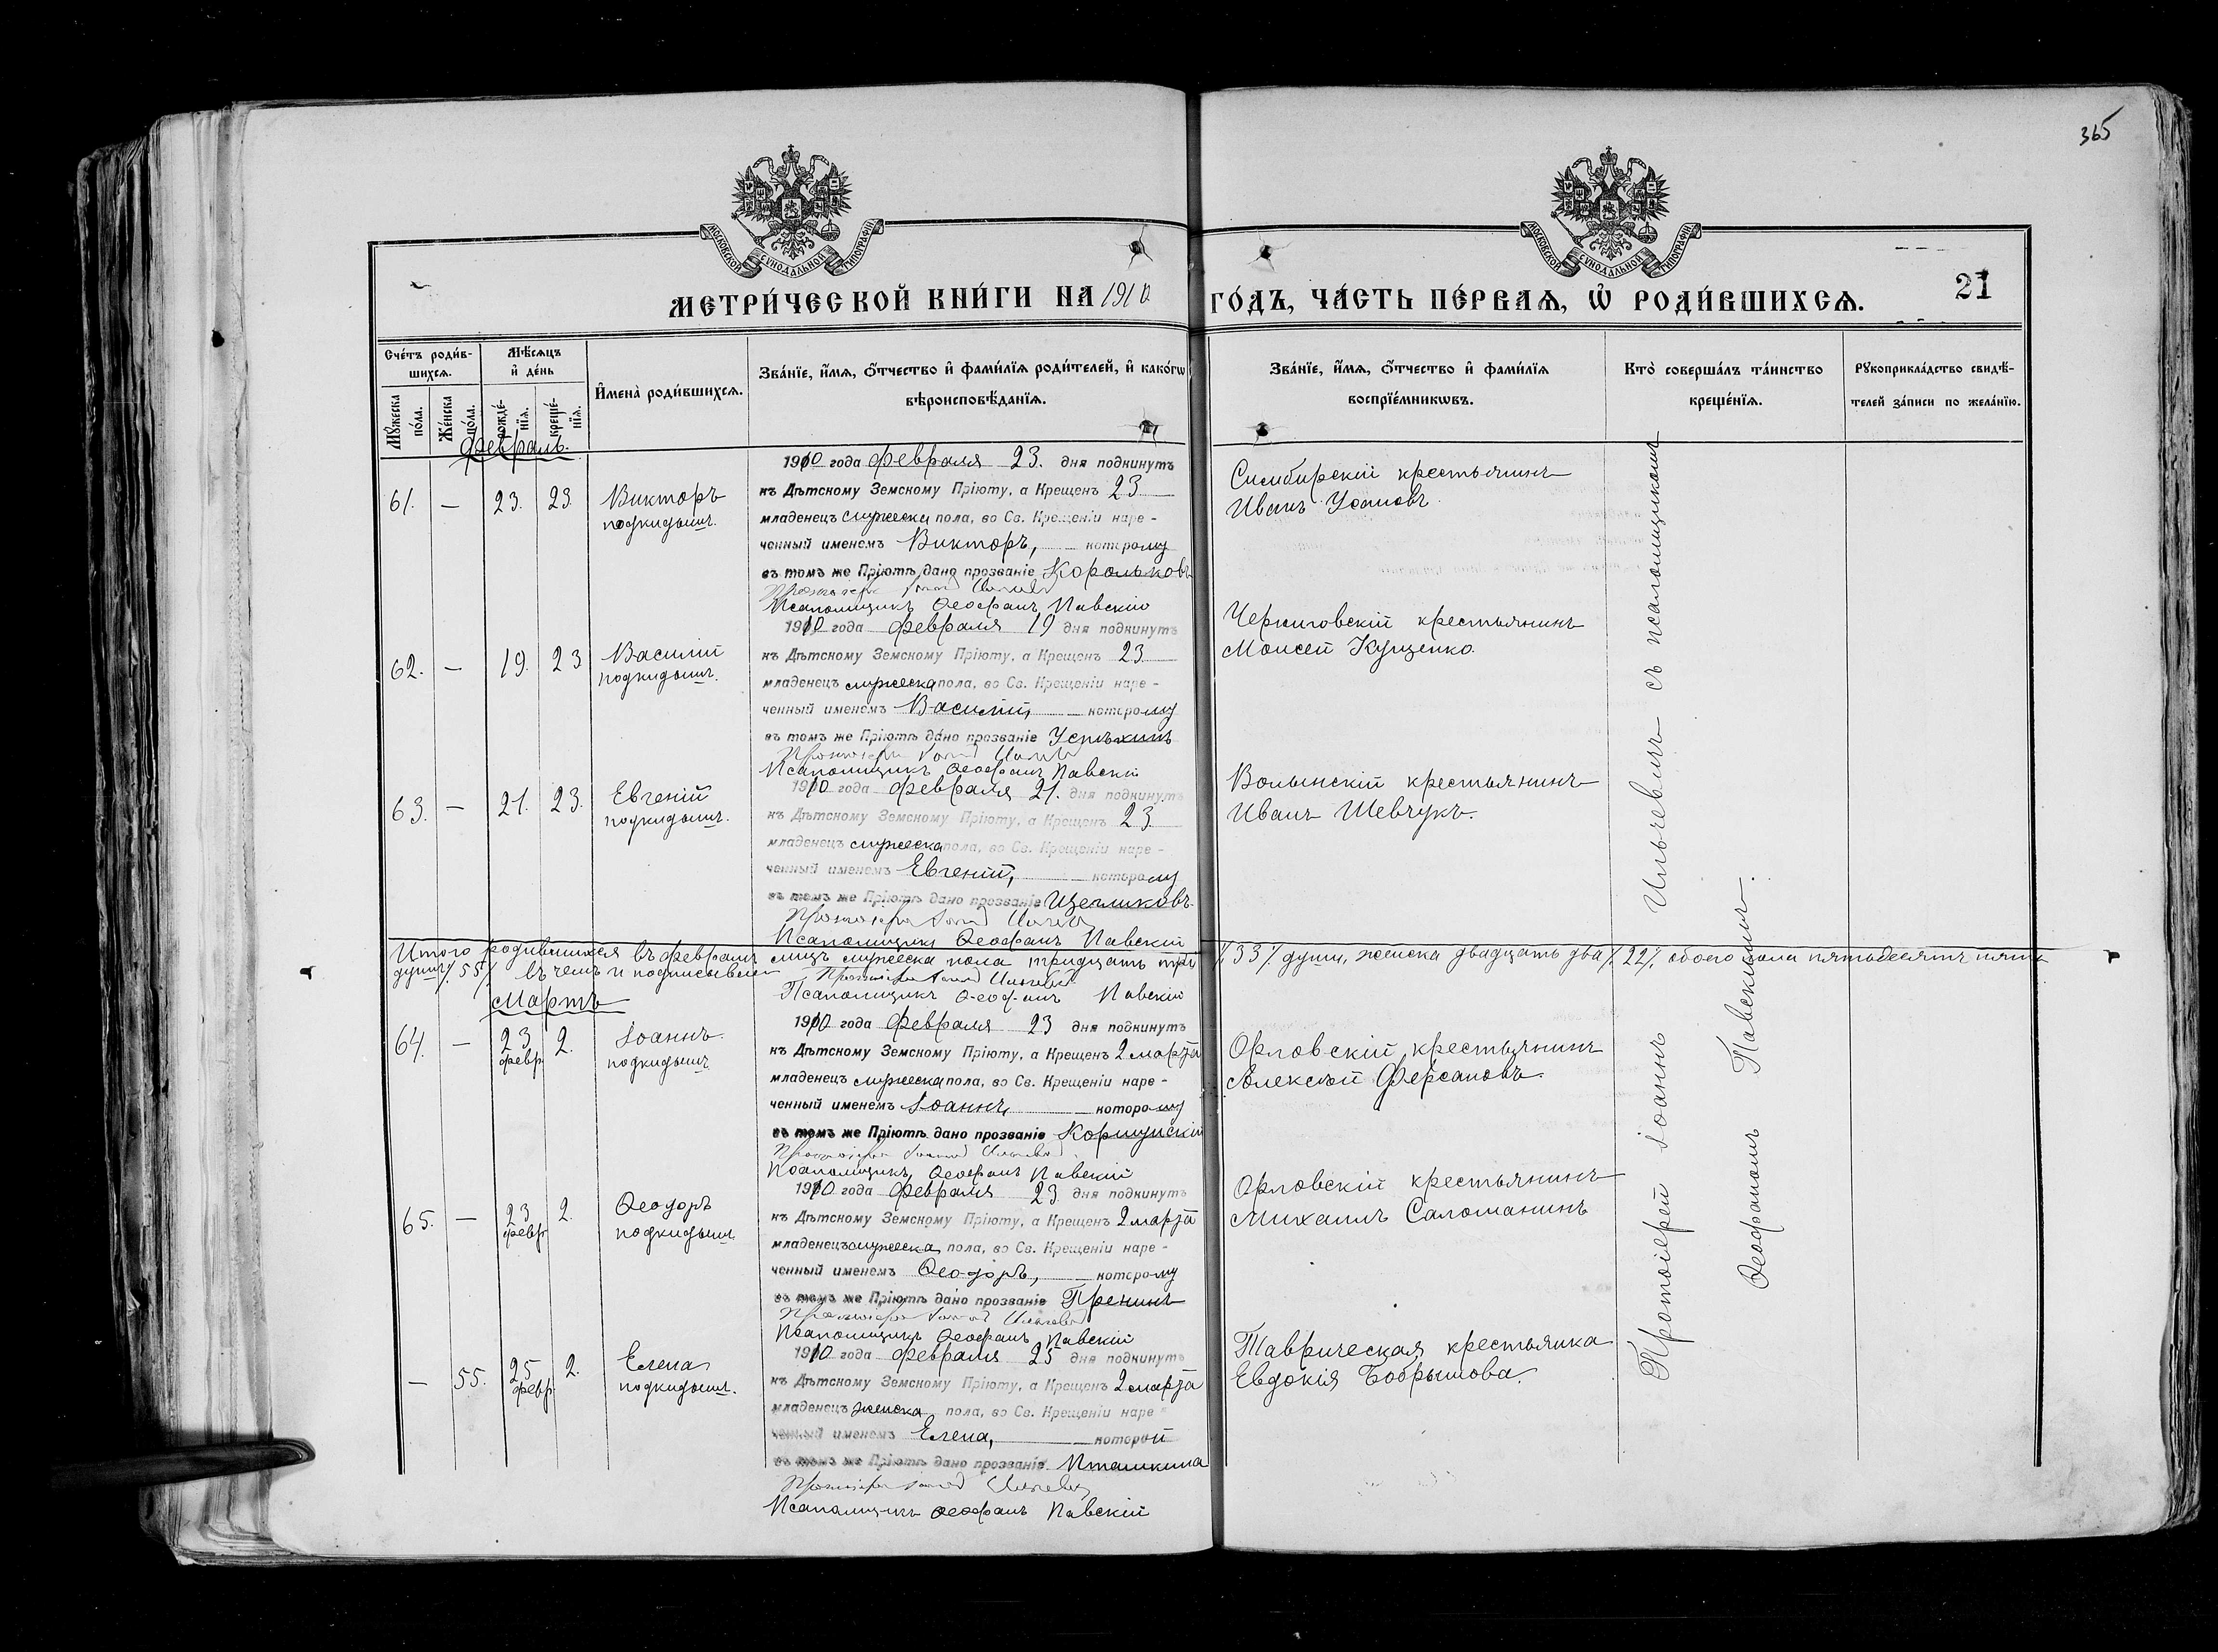 365
МОСКОВСКОЙ СѴНОДАЛЬНОЙ ТИПОГРАФІИ
МОСКОВСКОЙ СѴНОДАЛЬНОЙ ТИПОГРАФІИ
МЕТРИ́ЧЕСКОЙ КНИ́ГИ НА 1910
ГО́ДЪ, ЧА́СТЬ ПЕ́РВАѦ, Ѡ҆ РОДИ́ВШИХСѦ.
21
Сче́тъ роди́в-
шихсѧ.
Мꙋ́жеска
по́ла.
Же́нска
по́ла.
Мѣ́сѧцъ
и҆ де́нь
рожде́-
нїѧ.
креще́-
нїѧ.
И҆мена̀ роди́вшихсѧ.
Зва́нїе, и҆́мѧ, ѻ҆́тчество и҆ фами́лїѧ роди́телей, и҆ како́гѡ
вѣроисповѣ́данїѧ.
Зва́нїе, и҆́мѧ, ѻ҆́тчество и҆ фами́лїѧ
воспрїе́мникѡвъ.
Кто̀ соверша́лъ та́инство
креще́нїѧ.
Рꙋкоприкла́дство свидѣ́-
телей за́писи по жела́нїю.
Февраль.
61. — 23. 23. Викторъ
подкидышъ.
1910 года Февраля 23. дня подкинутъ
къ Дѣтскому Земскому Пріюту, а Крещенъ 23
младенецъ мужеска пола, во Св. Крещеніи наре-
ченный именемъ Викторъ, которому
въ томъ же Пріютѣ дано прозваніе Корольковъ
Протоіерей Іоаннъ Ильичевъ
Псаломщикъ Ѳеофанъ Павскій
Симбирскій крестьянинъ
Иванъ
62. — 19. 23 Василій
подкидышъ.
1910 года Февраля 19 дня подкинутъ
къ Дѣтскому Земскому Пріюту, а Крещенъ 23
младенецъ мужеска пола, во Св. Крещеніи наре-
ченный именемъ Василій, которому
въ томъ же Пріютѣ дано прозваніе
Протоіерей Іоаннъ Ильичевъ
Псаломщикъ Ѳеофанъ Павскій
Черниговскій крестьянинъ
Моисей Кущенко
63. — 21. 23. Евгеній
подкидышъ.
1910 года Февраля 21. дня подкинутъ
къ Дѣтскому Земскому Пріюту, а Крещенъ 23
младенецъ мужеска пола, во Св. Крещеніи наре-
ченный именемъ Евгеній, которому
въ томъ же Пріютѣ дано прозваніе Щегликовъ
Протоіерей Іоаннъ Ильичевъ
Псаломщикъ Ѳеофанъ Павскій
Волынскій крестьянинъ
Иванъ Шевчукъ.
Итого родившихся въ февралѣ лицъ мужеска пола тридцать три /.33/. души, женска двадцать два /.22/. обоего пола пятьдесятъ пять
душъ /.55/. въ чемъ и подписываемся
Протоіерей Іоаннъ Ильичевъ
Псаломщикъ Ѳеофанъ Павскій
Мартъ
64. — 23 февр. 2. Іоаннъ
подкидышъ
1910 года Февраля 23 дня подкинутъ
къ Дѣтскому Земскому Пріюту, а Крещенъ 2 марта
младенецъ мужеска пола, во Св. Крещеніи наре-
ченный именемъ Іоаннъ, которому
въ томъ же Пріютѣ дано прозваніе Коршунскій
Протоіерей Іоаннъ Ильичевъ
Псаломщикъ Ѳеофанъ Павскій
Орловскій крестьянинъ
Алексѣй Ферсановъ.
65. — 23 февр 2. Ѳеодоръ
подкидышъ
1910 года Февраля 23 дня подкинутъ
къ Дѣтскому Земскому Пріюту, а Крещенъ 2 марта
младенецъ мужеска пола, во Св. Крещеніи наре-
ченный именемъ Ѳеодоръ, которому
въ томъ же Пріютѣ дано прозваніе Пренинъ
Протоіерей Іоаннъ Ильичевъ
Псаломщикъ Ѳеофанъ Павскій
Орловскій крестьянинъ
Михаилъ Саломанинъ
— 55. 25 февр 2. Елена
подкидышъ.
1910 года Февраля 25 дня подкинутъ
къ Дѣтскому Земскому Пріюту, а Крещенъ 2 марта
младенецъ женска пола, во Св. Крещеніи наре-
ченный именемъ Елена, которой
въ томъ же Пріютѣ дано прозваніе Пташкина
Протоіерей Іоаннъ Ильичевъ
Псаломщикъ Ѳеофанъ Павскій
Таврическая крестьянка
Евдокія Бобрышова.
Протоіерей Іоаннъ Ильичевымъ съ псаломщикомъ
Ѳеофаномъ Павскимъ.